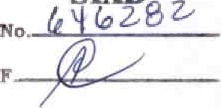 No. 646282
F